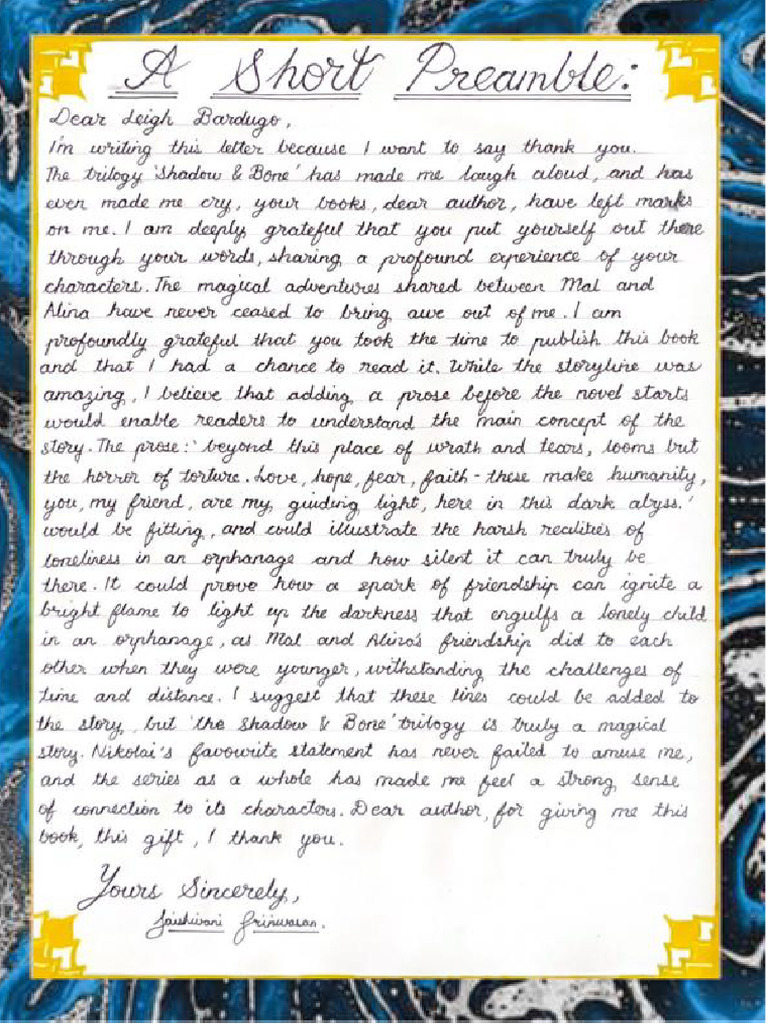 A Short Preamble:
Dear Leigh Bardugo,
I'm writing this letter because I want to say thank you.
The trilogy 'Shadow & Bone' has made me laugh aloud, and has
even made me cry, your books, dear author, have left marks
on me. I am deeply grateful that you put yourself out there
through your words, sharing a profound experience of your
characters. The magical adventures shared between Mal and
Alina have never ceased to bring awe out of me. I am
profoundly grateful that you took the time to publish this book
and that I had a chance to read it. While the storyline was
amazing, I believe that adding a prose before the novel starts
would enable readers to understand the main concept of the
story. The prose: 'beyond this place of wrath and tears, looms but
the horror of torture. Love, hope, fear, faith - these make humanity,
you, my friend, are my guiding light, here in this dark abyss.'
would be fitting, and could illustrate the harsh realities of
loneliness in an orphanage and how silent it can truly be
there. It could prove how a spark of friendship can ignite a
bright flame to light up the darkness that engulfs a lonely child
in an orphanage, as Mal and Alina's friendship did to each
other when they were younger, withstanding the challenges of
time and distance. I suggest that these lines could be added to
the story, but 'the Shadow & Bone' trilogy is truly a magical
story. Nikolai's favourite statement has never failed to amuse me,
and the series as a whole has made me feel a strong sense
of connection to its characters. Dear author, for giving me this
book, this gift, I thank you.
Yours Sincerely,